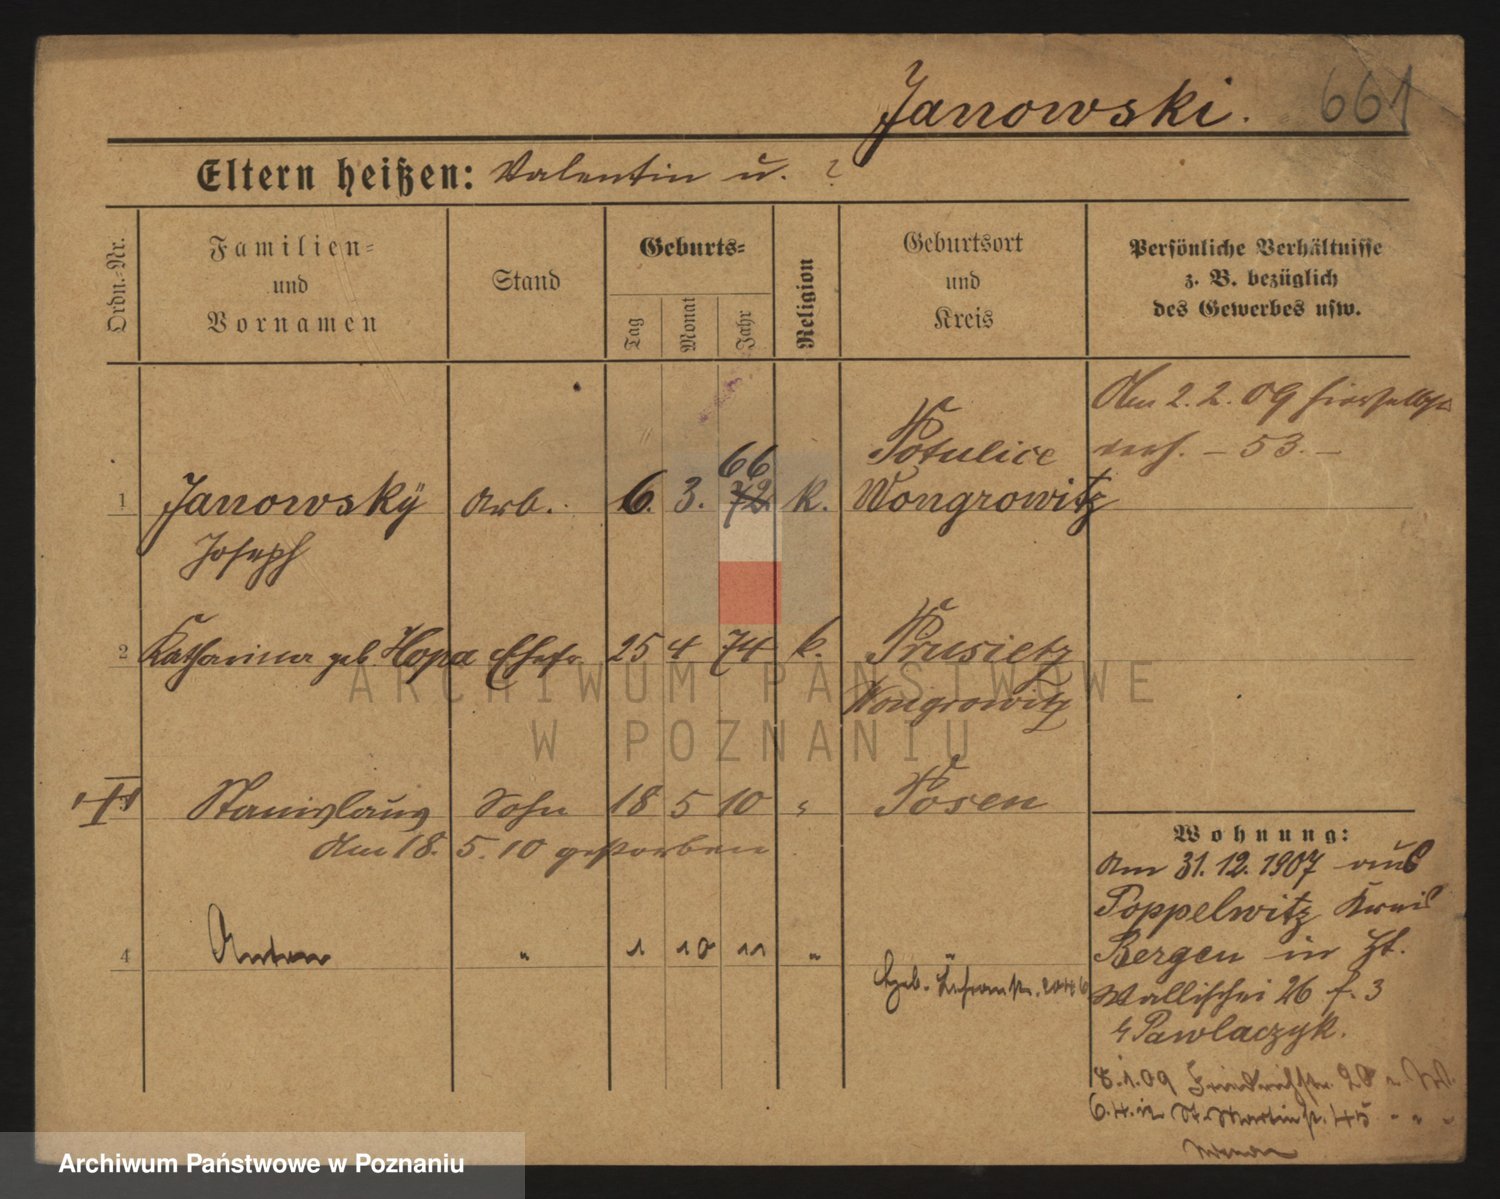 Janowski. 661
Eltern heißen: Valentin u. ?
Ordn.-Nr.
Familien-
und
Vornamen
Stand
Geburts-
Tag
Monat
Jahr
Religion
Geburtsort
und
Kreis
Persönliche Verhältnisse
z. B. bezüglich
des Gewerbes usw.
Am 2. 2. 09
66
Potulice
– 53. –
1 Janowskÿ Arb. 6. 3. 72 k. Wongrowitz
Joseph
2 Katharina geb. Hopa Ehefr. 25 4 74 k. Prusietz
Wongrowitz
Stanislaus Sohn 18 5 10 " Posen
Am 18. 5. 10 gestorben
4 Anton " 1 10 11 "
Wohnung:
Am 31. 12. 1907 aus
Poppelwitz Kreis
Bergen in Zt.
Wallischei 26 f. 3
Pawlaczyk.
8.1.09 Friedrichstr. 28
6.4.12 St. Martinstr. 45 " " "
ARCHIWUM PAŃSTWOWE
W POZNANIU
Archiwum Państwowe w Poznaniu